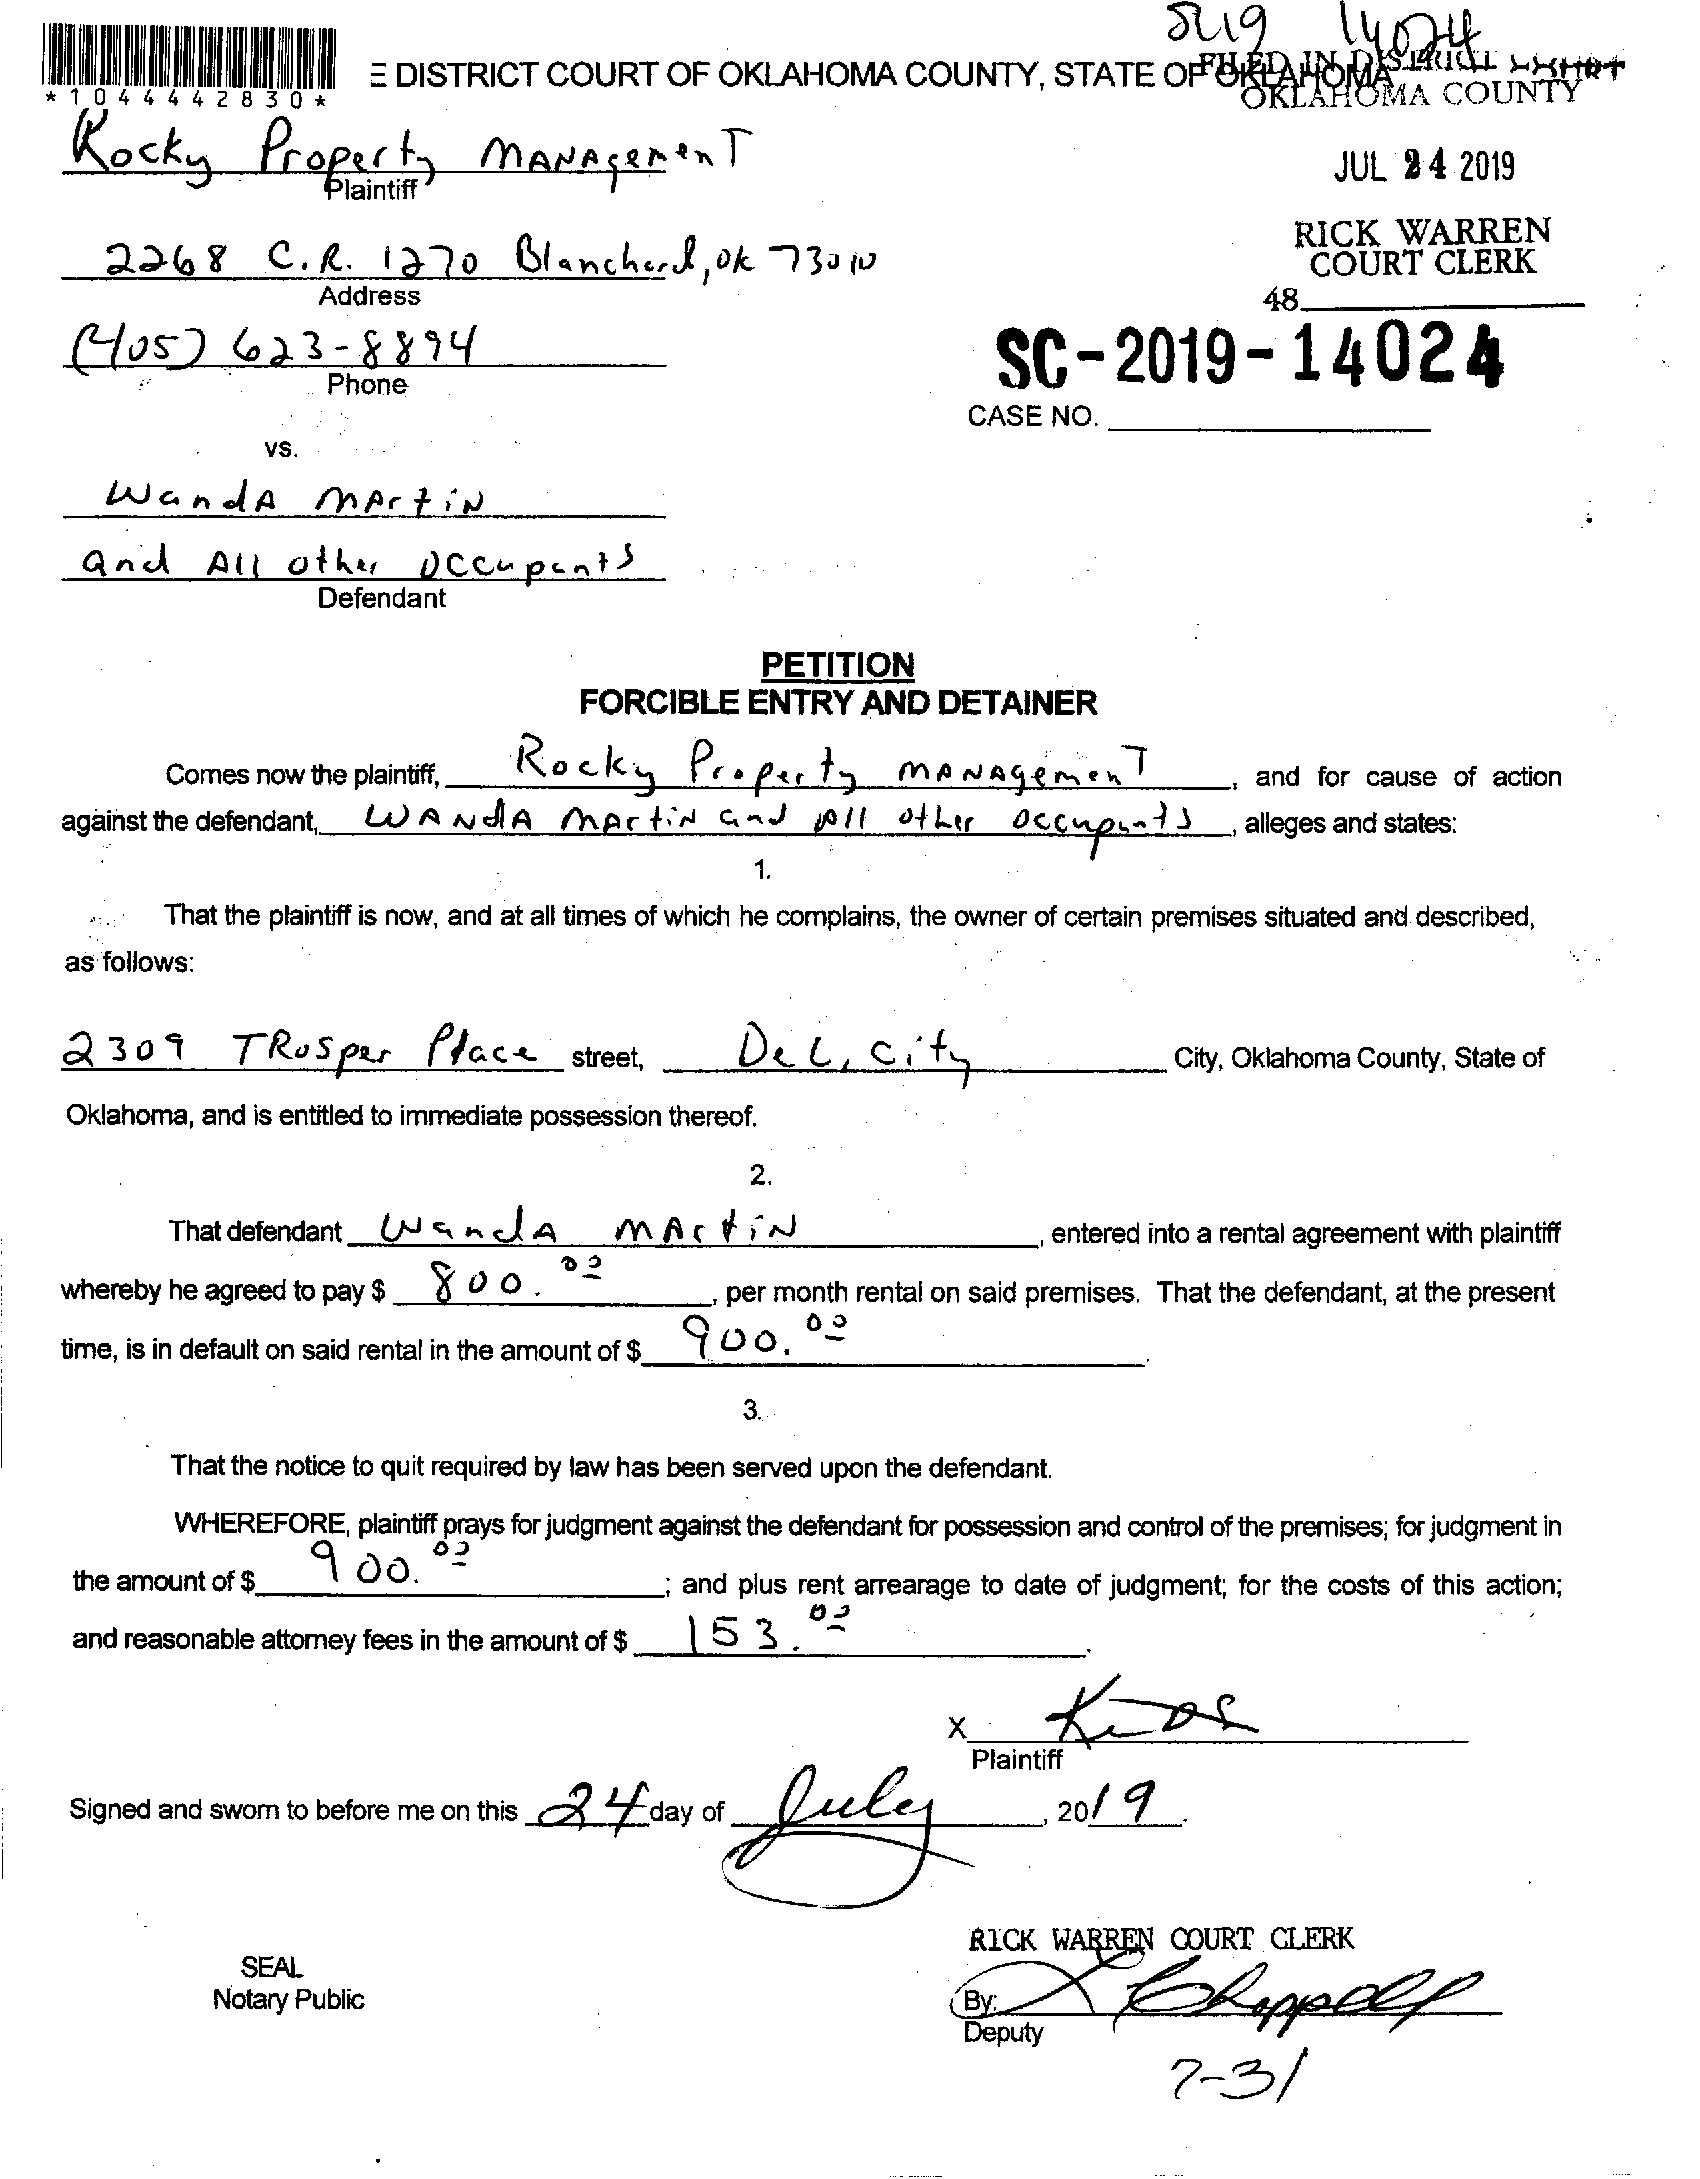 SC19 14024
E DISTRICT COURT OF OKLAHOMA COUNTY, STATE OF OKLAHOMA
FILED IN DISTRICT COURT
OKLAHOMA COUNTY
*1044442830*
Rocky Property Management
Plaintiff
JUL 24 2019
2268 C.R. 1270 Blanchard, OK 73010
Address
RICK WARREN
COURT CLERK
48
(405) 623-8894
Phone
SC-2019-14024
CASE NO.
vs.
Wanda Martin
and All other Occupants
Defendant
PETITION
FORCIBLE ENTRY AND DETAINER
Comes now the plaintiff, Rocky Property Management, and for cause of action
against the defendant, Wanda Martin and All other occupants, alleges and states:
1.
That the plaintiff is now, and at all times of which he complains, the owner of certain premises situated and described,
as follows:
2309 Trosper Place street, Del City City, Oklahoma County, State of
Oklahoma, and is entitled to immediate possession thereof.
2.
That defendant Wanda Martin, entered into a rental agreement with plaintiff
whereby he agreed to pay $ 800.00, per month rental on said premises. That the defendant, at the present
time, is in default on said rental in the amount of $ 900.00.
3.
That the notice to quit required by law has been served upon the defendant.
WHEREFORE, plaintiff prays for judgment against the defendant for possession and control of the premises; for judgment in
the amount of $ 900.00; and plus rent arrearage to date of judgment; for the costs of this action;
and reasonable attorney fees in the amount of $ 153.00.
X
Plaintiff
Signed and sworn to before me on this 24 day of July, 2019.
RICK WARREN COURT CLERK
SEAL
Notary Public
By: Chappell
Deputy
7-31